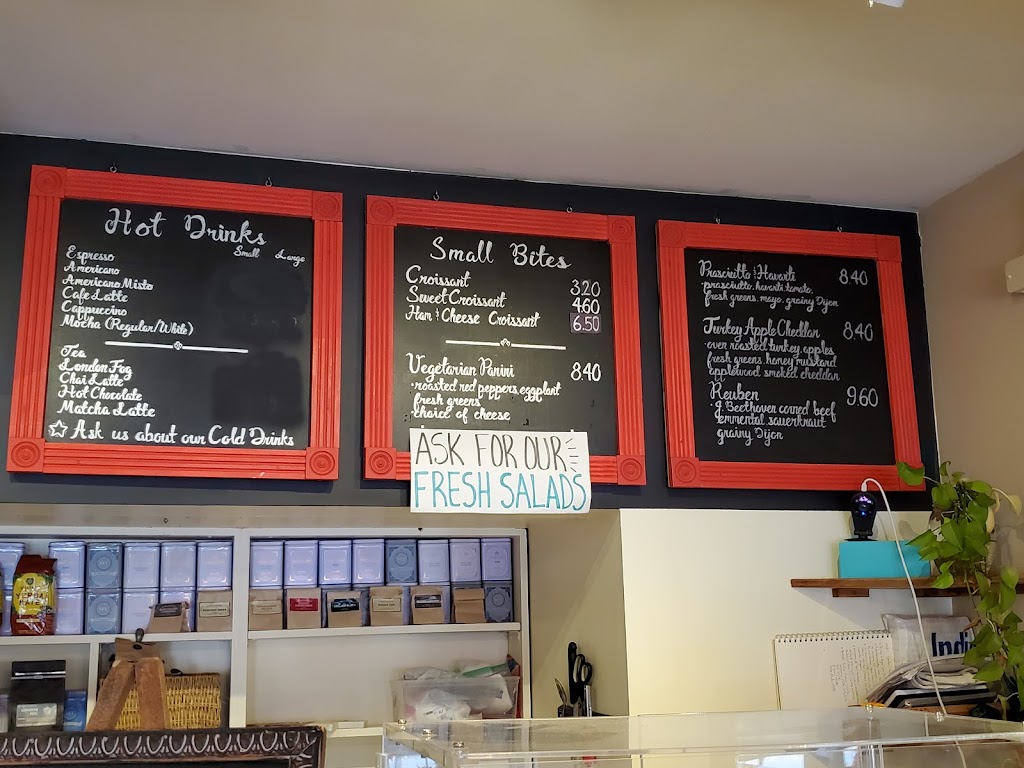 Hot Drinks
Small Large
Espresso
Americano
Americano Misto
Cafe Latte
Cappuccino
Mocha (Regular/White)
Tea
London Fog
Chai Latte
Hot Chocolate
Matcha Latte
Ask us about our Cold Drinks
Small Bites
Croissant 3.20
Sweet Croissant 4.60
Ham & Cheese Croissant 6.50
Vegetarian Panini 8.40
roasted red peppers, eggplant
fresh greens
choice of cheese
ASK FOR OUR
FRESH SALADS
Prosciutto & Havarti 8.40
prosciutto, havarti, tomato,
fresh greens, mayo, grainy Dijon
Turkey Apple Cheddar 8.40
oven roasted turkey, apples
fresh greens, honey mustard
applewood smoked cheddar
Reuben 9.60
J. Beethoven corned beef
emmental, sauerkraut
grainy Dijon
Indi